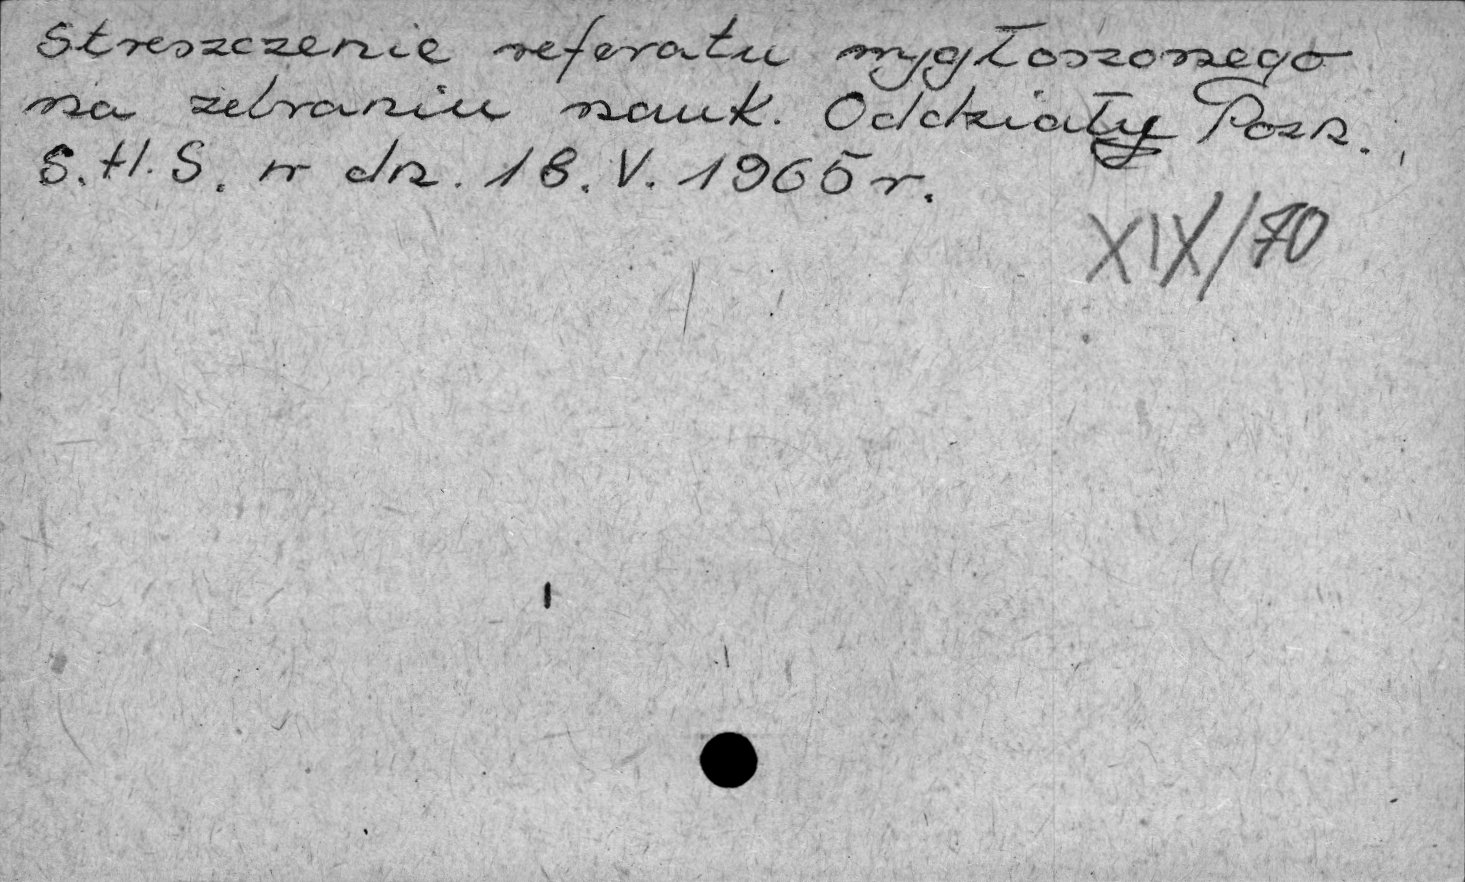 Streszczenie referatu wygłoszonego
na zebraniu nauk. Oddziału Pozn.
S.H.S. w dn. 18.V.1965 r.
XIX/70